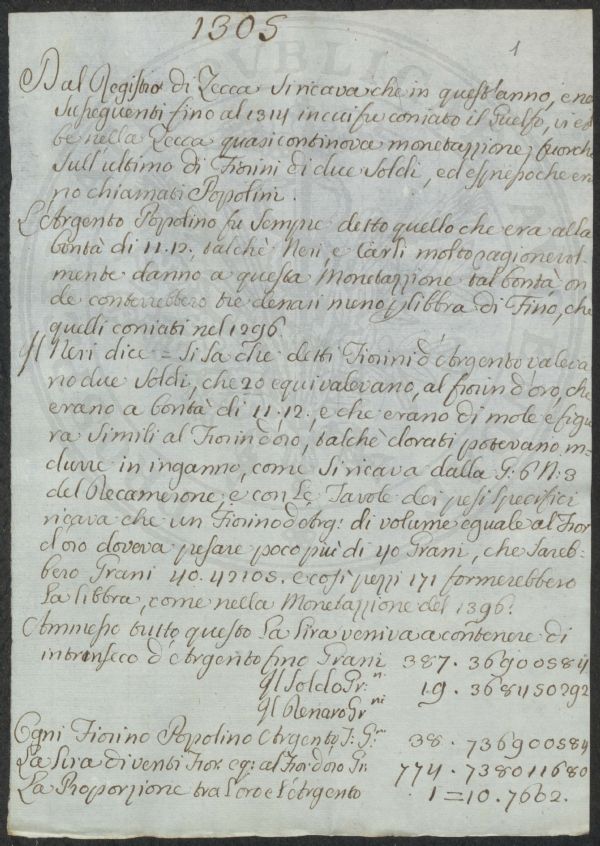 1305
1
Dal Registro di Zecca si ricava che in quest'anno, e ne
susseguenti fino al 1314 in cui fu coniato il Guelfo, vi eb
be nella Zecca quasi continova monetazzione, fuorchè
sull'ultimo di Fiorini di due Soldi, ed essi poche era
no chiamati Popolini.
L'Argento Popolino fu sempre detto quello che era alla
bontà di 11.12, talchè Neri, e Carli molto ragionevol
mente danno a questa Monetazzione tal bontà, on
de conterrebbero tre denari meno p libbra di Fino, che
quelli coniati nel 1296.
Il Neri dice = Si sa che detti Fiorini d'Argento valeva
no due Soldi, che 20 equivalevano, al fiorin d'oro, che
erano a bontà di 11,12, e che erano di mole e figu
ra simili al Fiorin d'oro, talchè dorati potevano in=
durre in inganno, come si ricava dalla G: 6 N: 3
del Decamerone, e con Le Tavole dei pesi specifici
ricava che un Fiorino d'Arg: di volume eguale al Fior
d'oro doveva pesare poco più di 40 Grani, che sareb=
bero Grani 40.42105. e così pezzi 171 formerebbero
la libbra, come nella Monetazzione del 1396.
Ammesso tutto questo La Lira veniva a contenere di
intrinseco d'Argento fino Grani 387.36900584
Il Soldo Gr:ni 19.368450292
Il Denaro Gr:ni
Ogni Fiorino Popolino Argento F: Gr:ni 38.736900584
La Lira di venti Fior. eq: al Fior d'oro Gr. 774.738011680
La Proporzione tra l'oro e l'Argento 1=10.7602.